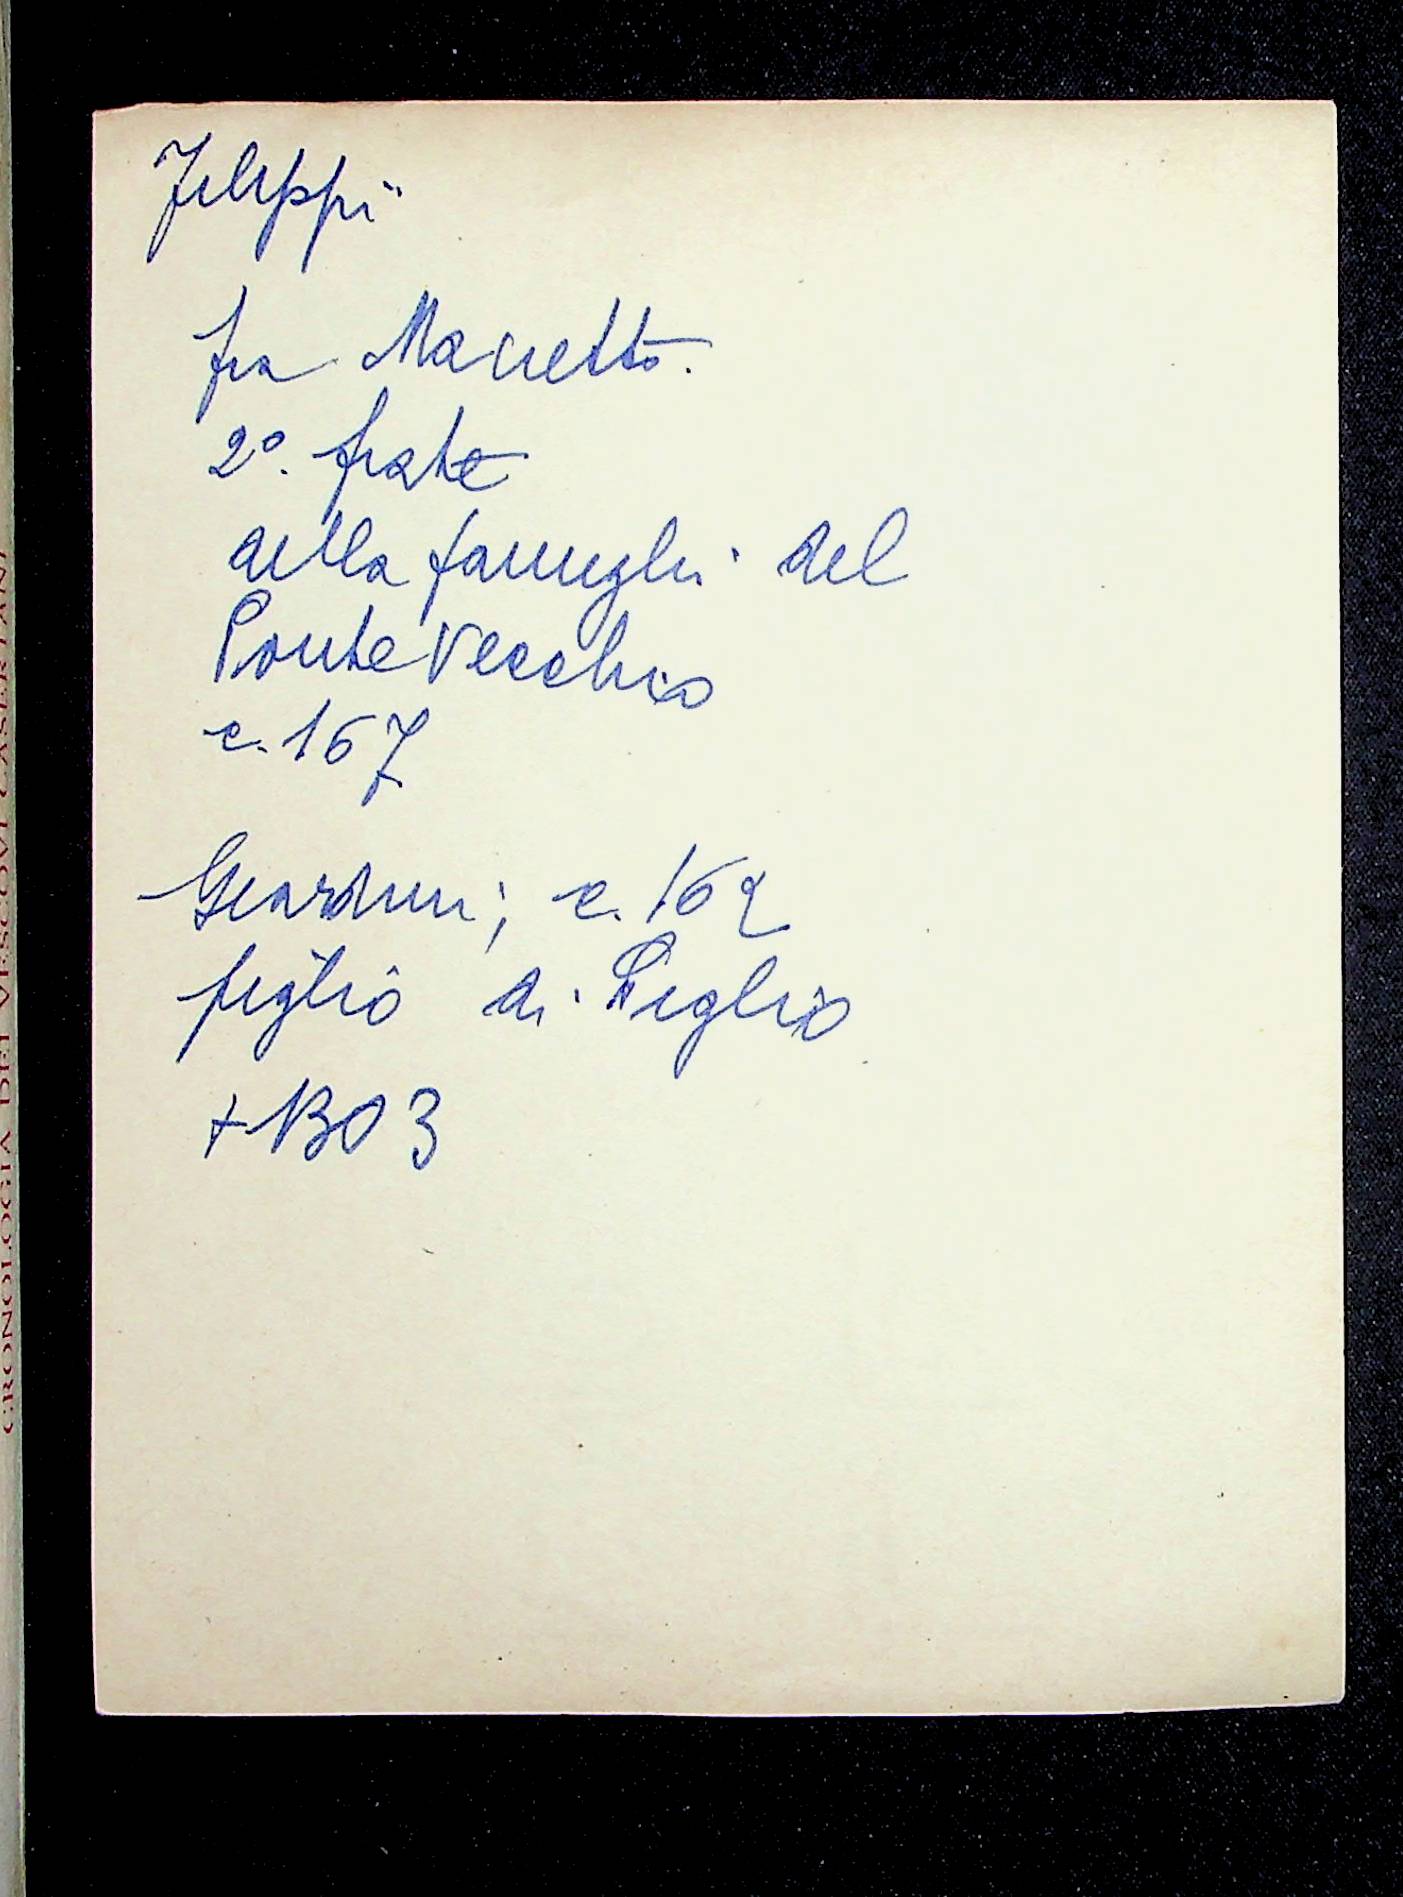 Filippi
fra Manetto.
2°. frate
della famiglia del
Ponte Vecchio
c. 167
Giardini; c. 162
figlio di Tiglio
+ 1303
CRONOLOGIA DEI VESCOVI CASERTANI